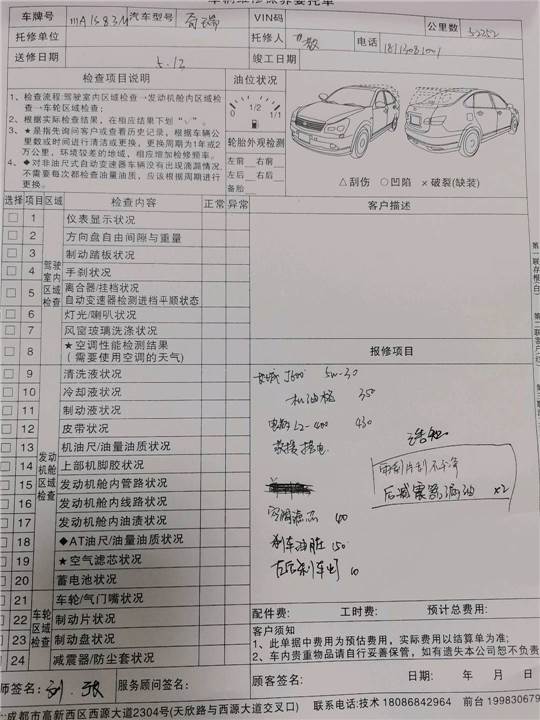 车辆维修保养委托单
车牌号 汽车型号 VIN码 公里数 52252
托修单位 托修人 电话
送修日期 5.12 竣工日期
检查项目说明 油位状况
1、检查流程:驾驶室内区域检查→发动机舱内区域检查→车轮区域检查;
2、根据实际检查结果,在相应结果下划“✓”。
3、★是指先询问客户或查看历史记录,根据车辆公里数或时间进行清洁或更换,更换周期为1年或2万公里,环境较差的地域,相应增加检修频率。
4、◆对非油尺式自动变速器车辆没有出现滴漏情况,不需要每次都检查油量油质,应该根据周期进行更换。
0 1/2 1/1
轮胎外观检测
左前 右前
左后 右后
备胎
△刮伤 ○凹陷 ×破裂(缺装)
选择 项目 区域 检查内容 正常 异常 客户描述
驾驶室内区域检查
1 仪表显示状况
2 方向盘自由间隙与重量
3 制动踏板状况
4 手刹状况
5 离合器/挂档状况
自动变速器检测进档平顺状态
6 灯光/喇叭状况
7 风窗玻璃洗涤状况
8 ★空调性能检测结果
(需要使用空调的天气)
发动机舱区域检查
9 清洗液状况
10 冷却液状况
11 制动液状况
12 皮带状况
13 机油尺/油量油质状况
14 上部机脚胶状况
15 发动机舱内管路状况
16 发动机舱内线路状况
17 发动机舱内油渍状况
18 ◆AT油尺/油量油质状况
19 ★空气滤芯状况
20 蓄电池状况
车轮区域检查
21 车轮/气门嘴状况
22 制动片状况
23 制动盘状况
24 减震器/防尘套状况
报修项目
长城 J600 5W-30
机油格 350
电瓶L2-400 430
救援搭电
后减震漏油 x2
空调滤芯 40
刹车油脏 150
右后刹车灯 10
配件费: 工时费: 预计总费用:
客户须知
1、此单据中费用为预估费用,实际费用以结算单为准;
2、车内贵重物品请自行妥善保管,如有遗失本公司恕不负责
师签名: 刘.张 服务顾问签名: 客户签名: 日期: 年 月 日
:成都市高新西区西源大道2304号(天欣路与西源大道交叉口) 联系电话:技术18086842964 前台199830679
第一联存根(白)